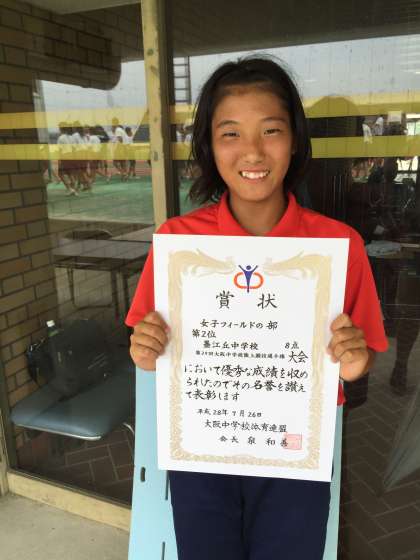 賞状
女子フィールドの 部
第2位
墨江丘中学校 8点
第29回大阪中学校陸上競技選手権 大会
において優秀な成績を収め
られたのでその名誉を讃え
て表彰します
平成 28年 7月 26日
大阪中学校体育連盟
会長 泉 和善